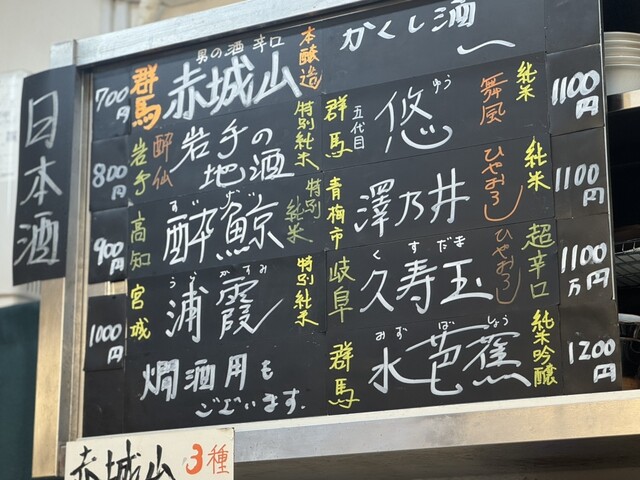 日本酒
700円
群馬
男の酒 辛口
赤城山
本醸造
800円
岩手
酔仙
岩手の地酒
特別純米
900円
高知
すい げい
酔鯨
特別純米
1000円
宮城
うら かすみ
浦霞
特別純米
燗酒用も
ございます.
かくし酒
群馬
五代目
ゆう
悠
舞風
純米
1100円
青梅市
澤乃井
ひやおろし
純米
1100円
岐阜
くすだま
久寿玉
ひやおろし
超辛口
1100円
群馬
みずばしょう
水芭蕉
純米吟醸
1200円
赤城山 3種